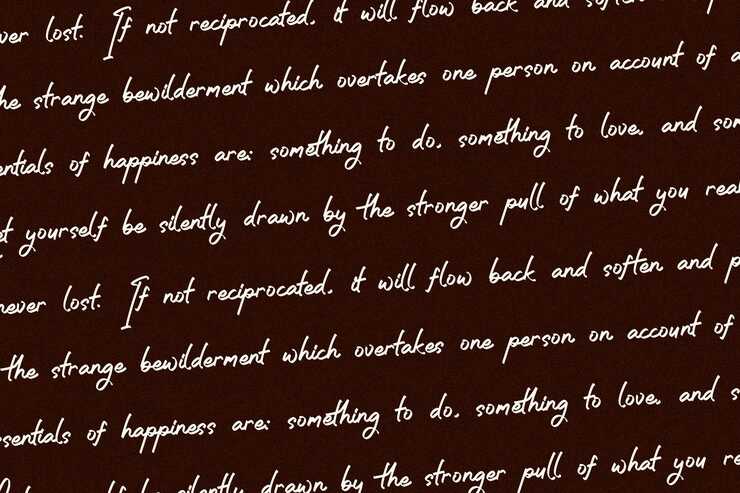 ver lost. If not reciprocated, it will flow back and soften
the strange bewilderment which overtakes one person on account of a
entials of happiness are: something to do, something to love, and som
et yourself be silently drawn by the stronger pull of what you real
never lost. If not reciprocated, it will flow back and soften and p
the strange bewilderment which overtakes one person on account of
ssentials of happiness are: something to do, something to love, and s
silently drawn by the stronger pull of what you re